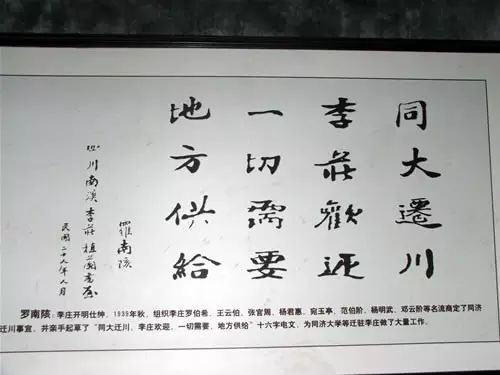 同大遷川
李莊歡迎
一切需要
地方供給
羅南陔
四川南溪李莊植蘭書屋
民國二十八年八月
罗南陔：李庄开明仕绅，1939年秋，组织李庄罗伯希、王云伯、张官周、杨君惠、宛玉亭、范伯阶、杨明武、邓云阶等名流商定了同济
迁川事宜，并亲手起草了“同大迁川，李庄欢迎，一切需要，地方供给”十六字电文，为同济大学等迁驻李庄做了大量工作。